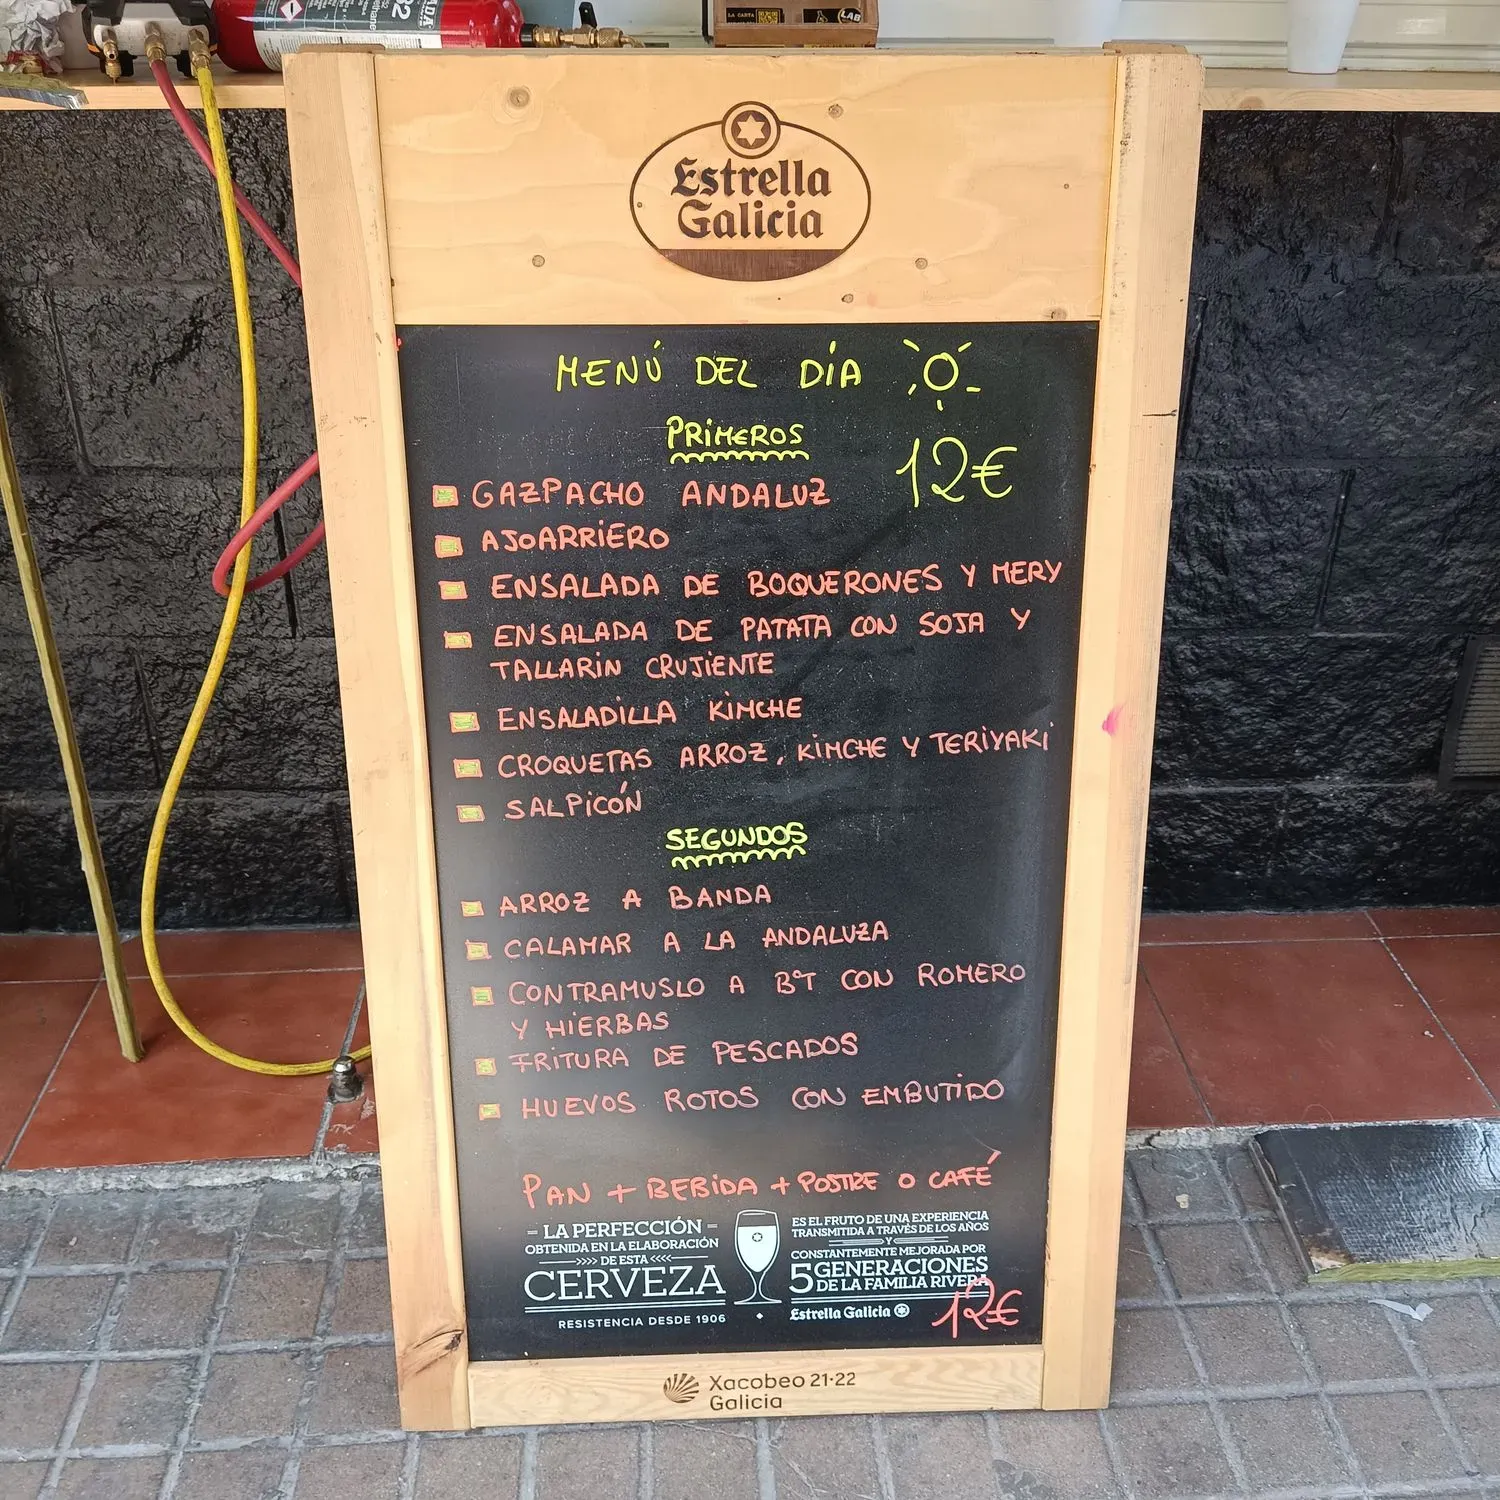 LA CARTA
LAB
Estrella
Galicia
MENÚ DEL DÍA
PRIMEROS
12€
GAZPACHO ANDALUZ
AJOARRIERO
ENSALADA DE BOQUERONES Y MERY
ENSALADA DE PATATA CON SOJA Y
TALLARIN CRUJIENTE
ENSALADILLA KIMCHE
CROQUETAS ARROZ, KIMCHE Y TERIYAKI
SALPICÓN
SEGUNDOS
ARROZ A BANDA
CALAMAR A LA ANDALUZA
CONTRAMUSLO A BªT CON ROMERO
Y HIERBAS
FRITURA DE PESCADOS
HUEVOS ROTOS CON EMBUTIDO
PAN + BEBIDA + POSTRE O CAFÉ
LA PERFECCIÓN
OBTENIDA EN LA ELABORACIÓN
>>>> DE ESTA <<<<
CERVEZA
RESISTENCIA DESDE 1906
ES EL FRUTO DE UNA EXPERIENCIA
TRANSMITIDA A TRAVÉS DE LOS AÑOS
Y
CONSTANTEMENTE MEJORADA POR
5 GENERACIONES
DE LA FAMILIA RIVERA
Estrella Galicia
12€
Xacobeo 21·22
Galicia